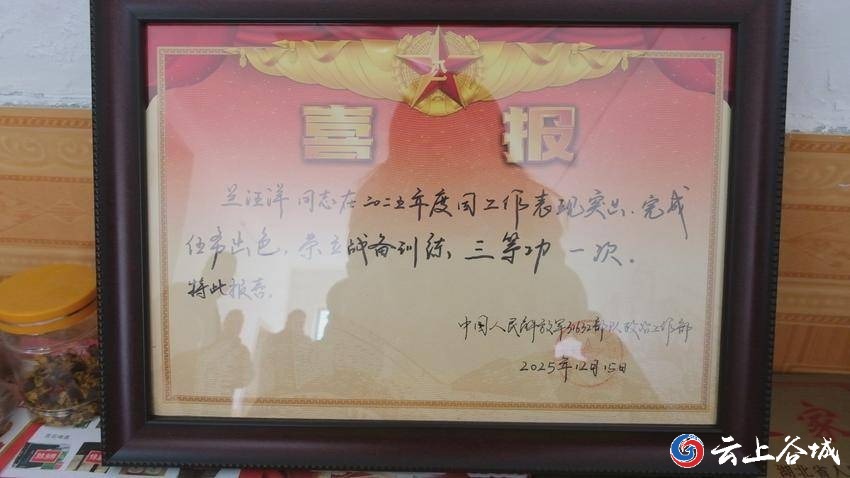 喜报
兰汪洋同志在二〇二五年度因工作表现突出、完成
任务出色，荣立战备训练三等功一次。
特此报喜。
中国人民解放军31632部队政治工作部
2025年12月15日
云上谷城